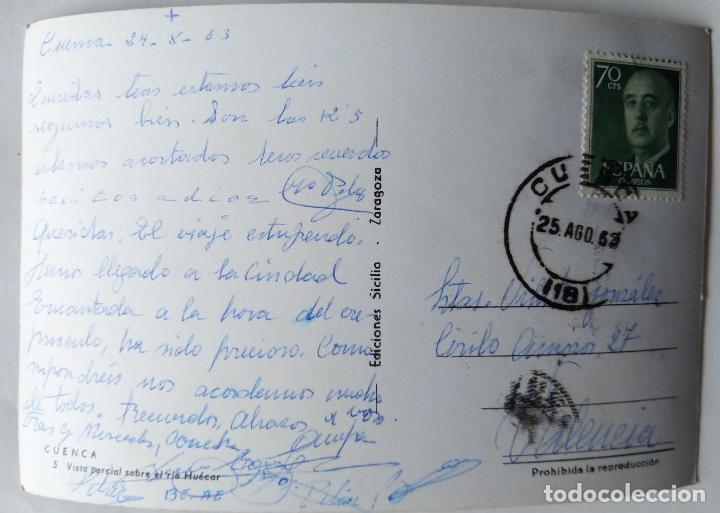 +
Cuenca 24-X-63
Queridas tías estamos bien
seguimos bien. Son las 12'5
estamos acostados tenos recuerdos
besitos adios
Queridas: El viaje estupendo.
Hemos llegado a la Ciudad
Encantada a la hora del cre-
púsculo, ha sido precioso. Como
supondréis nos acordamos mucho
de todos. Recuerdos, Abrazos a vos-
otras y Mercedes, Conchita Amparo
CUENCA
5 Vista parcial sobre el río Huécar
Pilar
Ediciones Sicilia - Zaragoza
70
CTS
ESPAÑA
CUENCA
25.AGO.63
(18)
Srtas. González
Cirilo Amorós, 27
Valencia
Prohibida la reproducción
todocoleccion.net